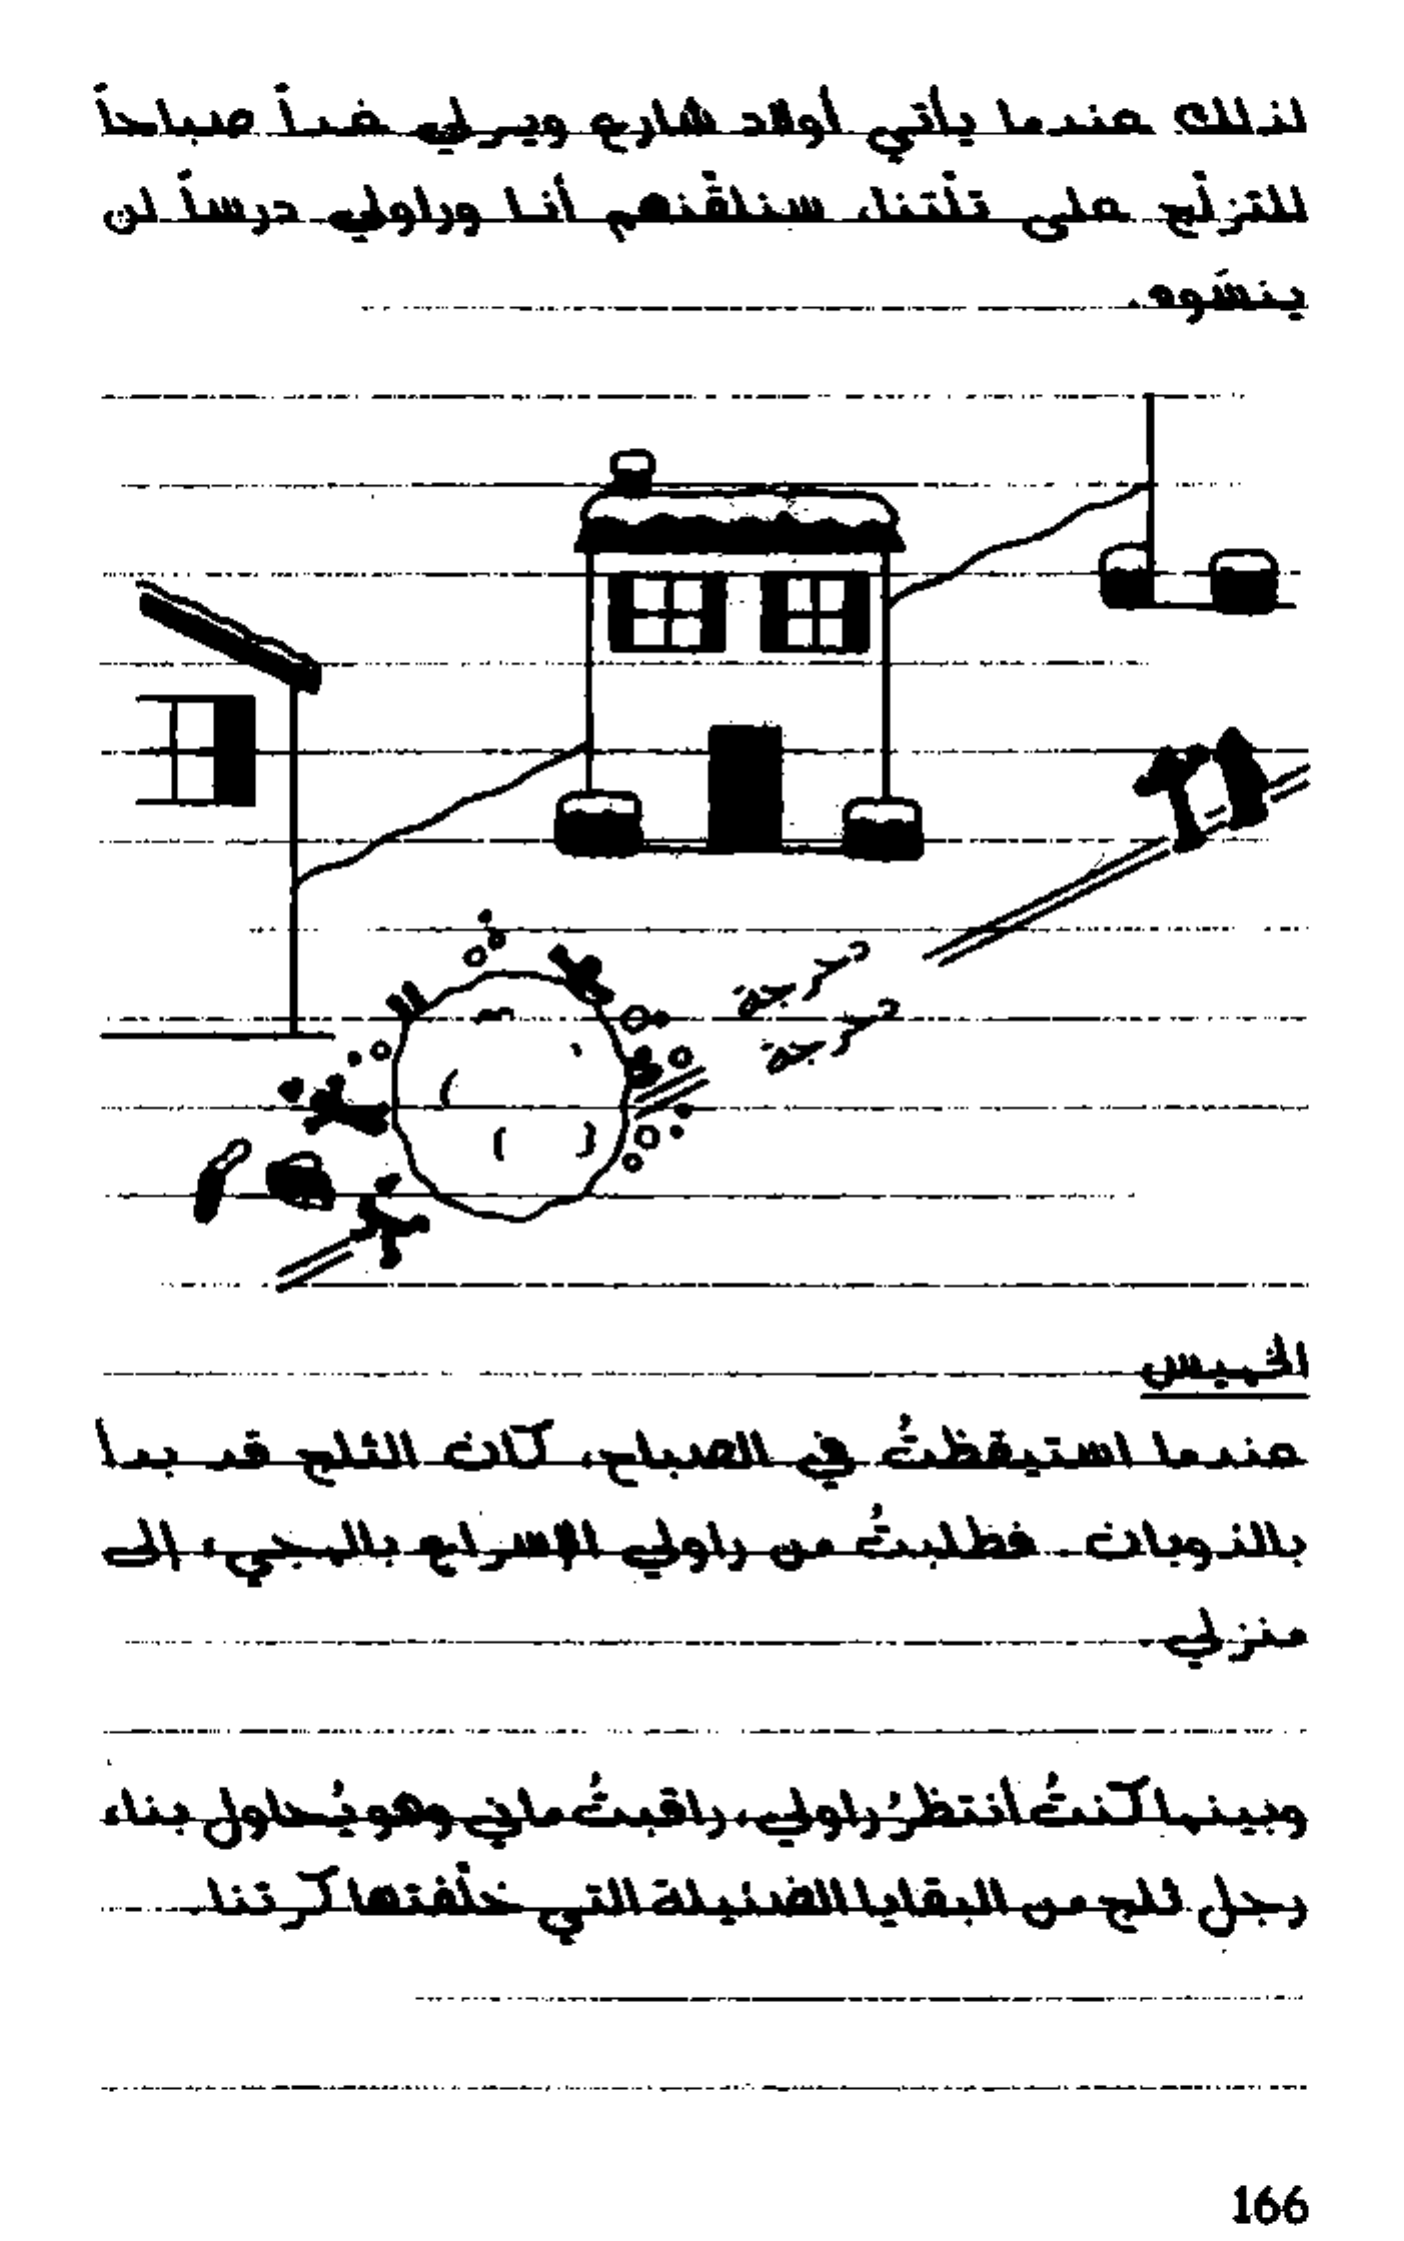 لذلك عندما يأتي أولاد شارع ويرلي غداً صباحاً
للتزلّج على تلّتنا، سنلقّنهم أنا وراولي درساً لن
ينسَوه.
دحرجة
دحرجة
الخميس
عندما استيقظتُ في الصباح، كان الثلج قد بدأ
بالذوبان. فطلبتُ من راولي الإسراع بالمجيء إلى
منزلي.
وبينما كنتُ أنتظرُ راولي، راقبتُ ماني وهو يُحاول بناء
رجل ثلج من البقايا الضئيلة التي خلّفتها كرتنا.
166